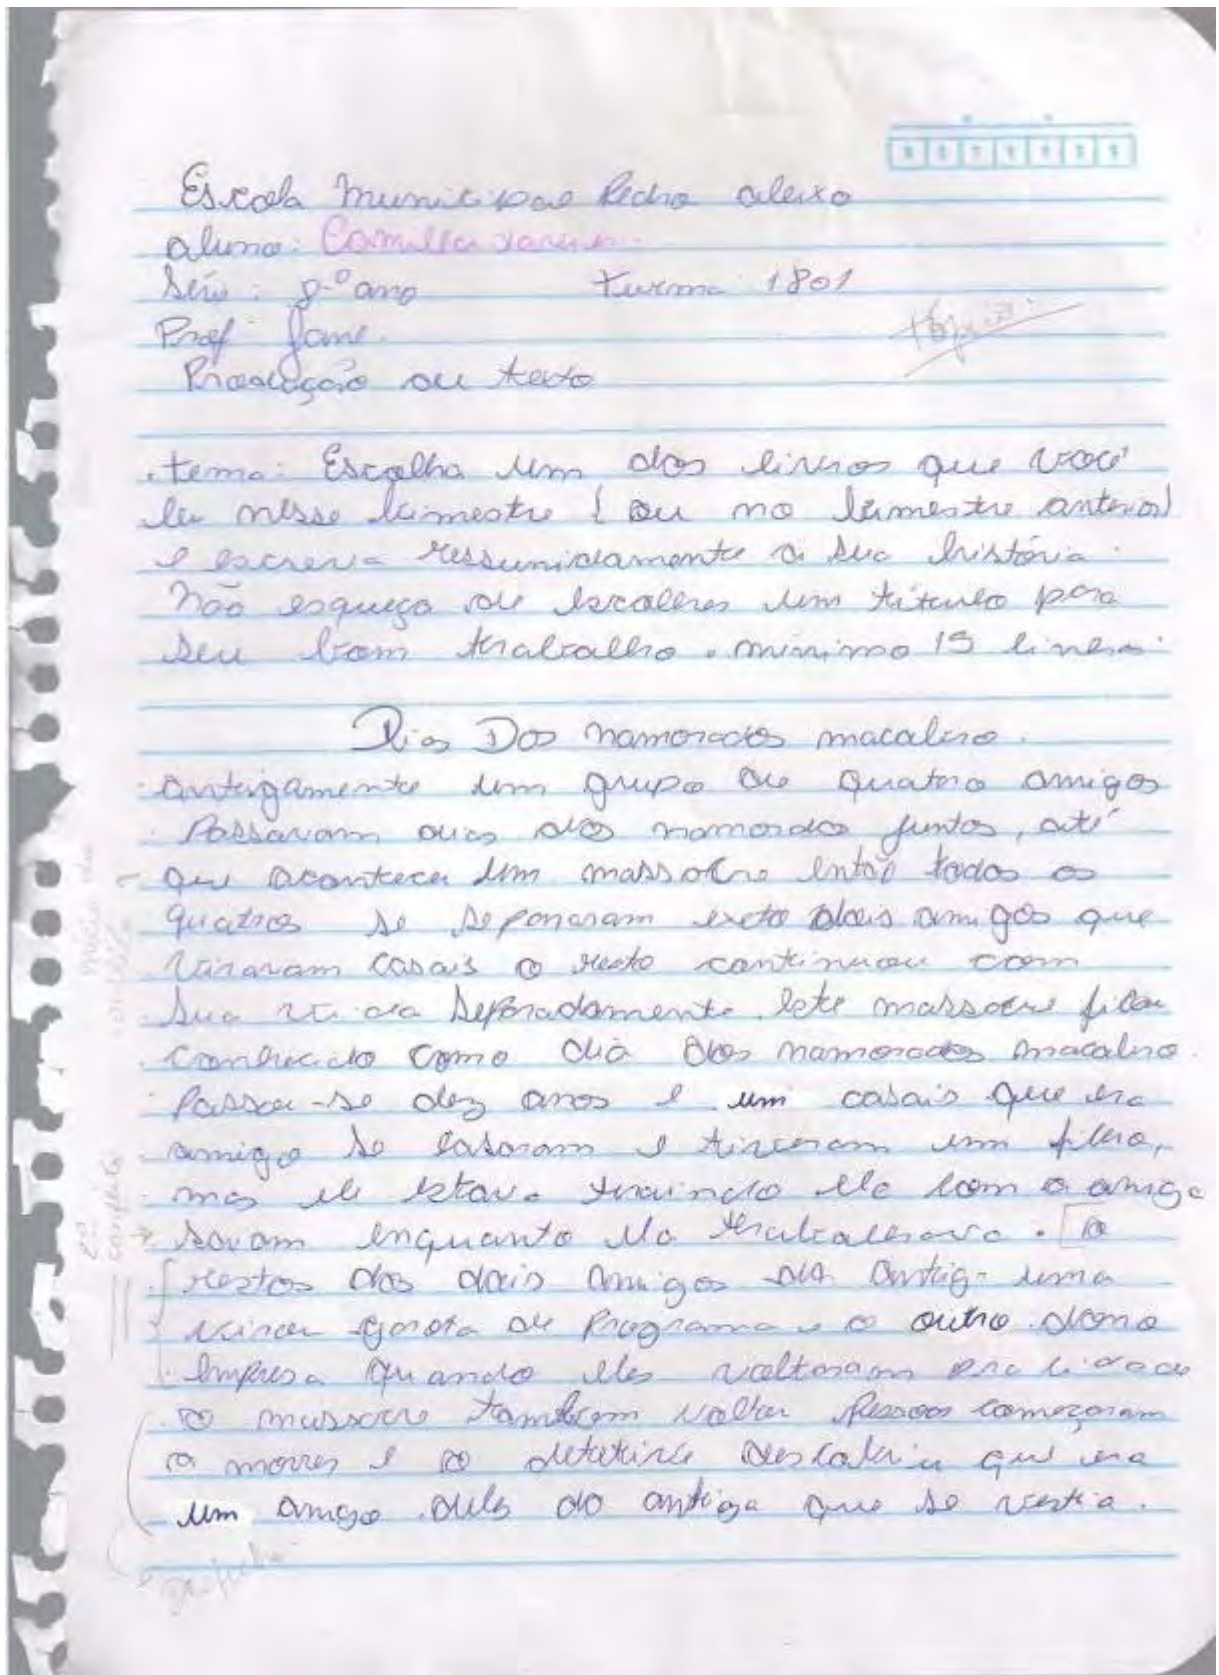 Escola Municipal Pedro aleixo
aluna: Camilla
Séri: 8º ano turma 1801
Prof: Jane.
Produção de texto
tema: Escolha um dos livros que você
leu nesse bimestre (ou no bimestre anterior)
e escreva ressumidamente a sua história.
Não esqueça de escolher um título para
seu bom trabalho. mínimo 15 linhas.
Dias Dos namorados macabro.
antigamente um grupo de quatro amigos
Passavam dias dos namorado juntos, até
que aconteceu um massacre então todos os
quatros se separaram exeto dois amigos que
viraram casais o resto continuou com
sua vida separadamente. este massacre ficou
conhecido como dia dos namorados macabro.
Passou-se dez anos e um casais que era
amigo se casaram e tiveram um filho,
mas ele estava traindo ela com a amiga
enquanto ela trabalhava. o
restos dos dois amigos da antiga uma
virou garota de Programa e o outro dono
empresa quando eles voltaram pra cidade
o massacre tambem voltou Pessoas começaram
a morrer e o detetive descobriu que era
um amigo deles do antiga que se vestia.
conflito